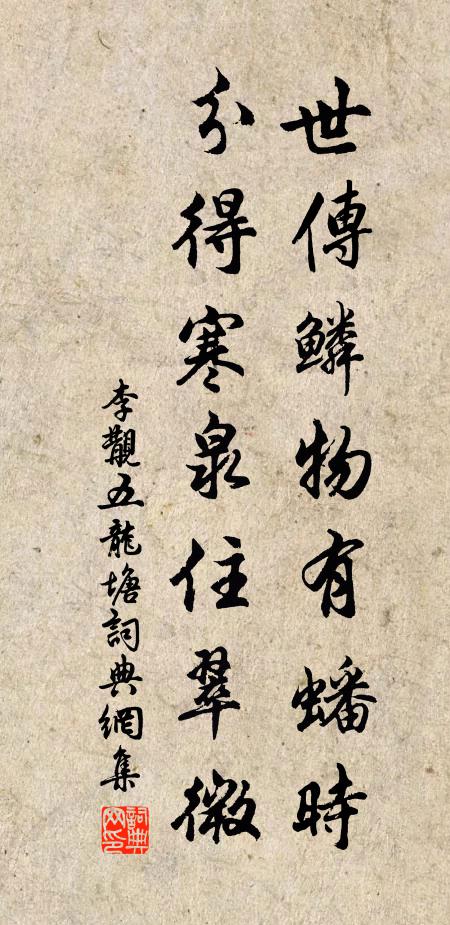 世傳鱗物有蟠時
分得寒泉住翠微
李觀五龍塘詞典網集
詞典
网印